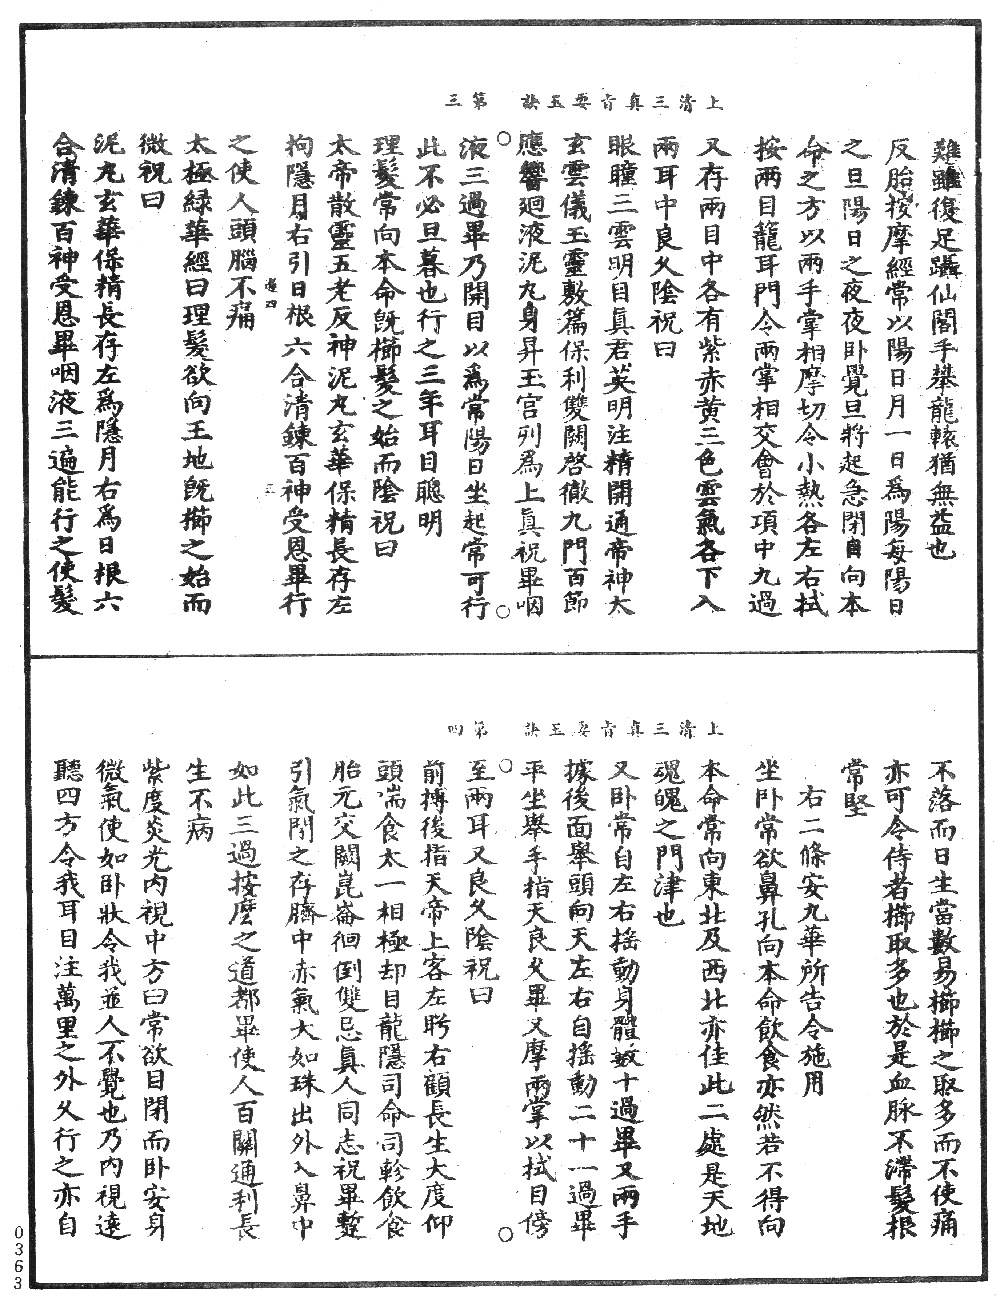 上清三真旨要玉訣　第三
難雖復足躡仙閣手攀龍轅猶無益也
反胎按摩經常以陽日月一日為陽每陽日
之旦陽日之夜夜卧覺旦將起急閉目向本
命之方以兩手掌相摩切令小熱各左右拭
按兩目籠耳門令兩掌相交會於項中九過
又存兩目中各有紫赤黄三色雲氣各下入
兩耳中良久陰祝曰
眼瞳三雲明目真君英明注精開通帝神太
玄雲儀玉靈敷篇保利雙闕啓徹九門百節
應響廻液泥丸身昇玉宫列為上真祝畢咽
液三過畢乃開目以為常陽日坐起常可行
此不必旦暮也行之三年耳目聰明
理髮常向本命既櫛髮之始而陰祝曰
太帝散靈五老反神泥丸玄華保精長存左
拘隱月右引日根六合清鍊百神受恩畢行
之使人頭腦不痛
太極緑華經曰理髮欲向王地既櫛之始而
微祝曰
泥丸玄華保精長存左為隱月右為日根六
合清鍊百神受恩畢咽液三遍能行之使髮
上清三真旨要玉訣　第四
不落而日生當數易櫛櫛之取多而不使痛
亦可令侍者櫛取多也於是血脉不滯髮根
常堅
右二條安九華所告令施用
坐卧常欲鼻孔向本命飲食亦然若不得向
本命常向東北及西北亦佳此二處是天地
魂魄之門津也
又卧常自左右揺動身體數十過畢又兩手
據後面舉頭向天左右自揺動二十一過畢
平坐舉手指天良久畢又摩兩掌以拭目傍
至兩耳又良久陰祝曰
前搏後指天帝上客左眄右顧長生大度仰
頭喘食太一相極却目龍隱司命司軫飲食
胎元交關崑崙徊倒雙忌真人同志祝畢蹔
引氣閉之存臍中赤氣大如珠出外入鼻中
如此三過按摩之道都畢使人百關通利長
生不病
紫度炎光内視中方曰常欲目閉而卧安身
微氣使如卧狀令我並人不覺也乃内視遠
聽四方令我耳目注萬里之外久行之亦自
0363